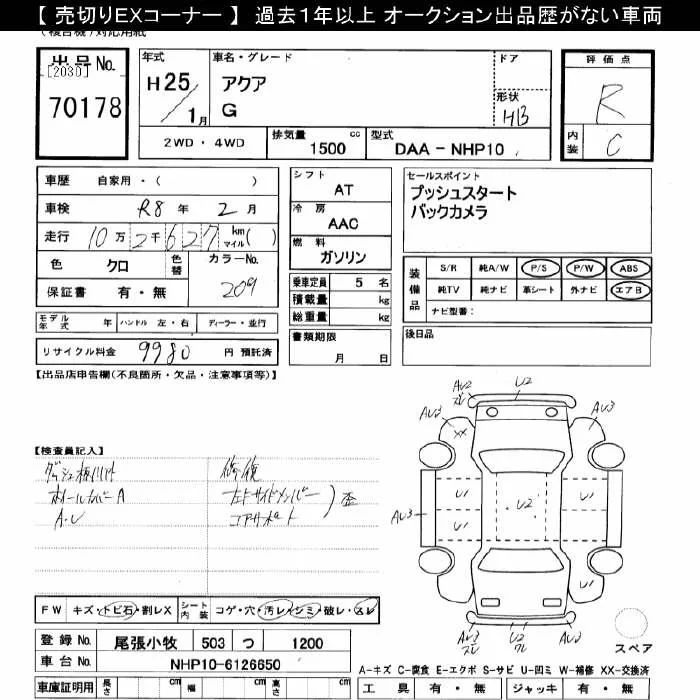 【 売切りEXコーナー 】 過去1年以上 オークション出品歴がない車両
出品No.
[2030]
70178
年式
H25/1月
車名・グレード
アクア
G
ドア
形状
HB
評価点
R
内装
C
2WD ・ 4WD
排気量 1500 cc
型式 DAA - NHP10
車歴 自家用・( )
車検 R8 年 2 月
走行 10万2千627 km マイル( )
色 クロ 色替
カラーNo. 209
保証書 有・無
モデル年式 年 ハンドル 左・右 ディーラー・並行
リサイクル料金 9980 円 預託済
シフト AT
冷房 AAC
燃料 ガソリン
乗車定員 5 名
積載量 kg
総重量 kg
書類期限 月 日
セールスポイント
プッシュスタート
バックカメラ
装備品
S/R 純A/W P/S P/W ABS
純TV 純ナビ 革シート 外ナビ エアB
ナビ型番:
後日品
【出品店申告欄(不良箇所・欠品・注意事項等)】
【検査員記入】
ホイールカバーA
A.U
修復
左右サイドメンバー
コアサポート
歪
AU2
U2
AU3
AU2
XX
U1
U1
U2
U1
U1
AU3
U1
AU3
U2
AU2
FW キズ・トビ石・割レX
シート内装 コゲ・穴・汚レ・シミ・破レ・スレ
登録No. 尾張小牧 503 つ 1200
車台No. NHP10-6126650
車庫証明用 長さ cm 幅 cm 高さ cm
スペア
A-キズ C-腐食 E-エクボ S-サビ U-凹ミ W-補修 XX-交換済
工具 有 ・ 無 ジャッキ 有 ・ 無